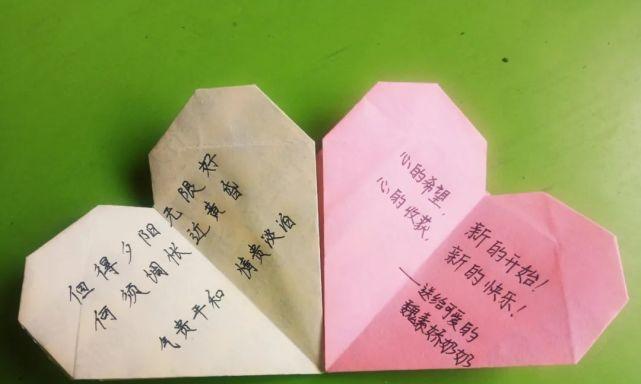 但得夕阳无限好
何须惆怅近黄昏
气贵平和 情贵淡泊
心的希望,
心的收获,
新的开始!
新的快乐!
——送给可爱的
魏素娇奶奶